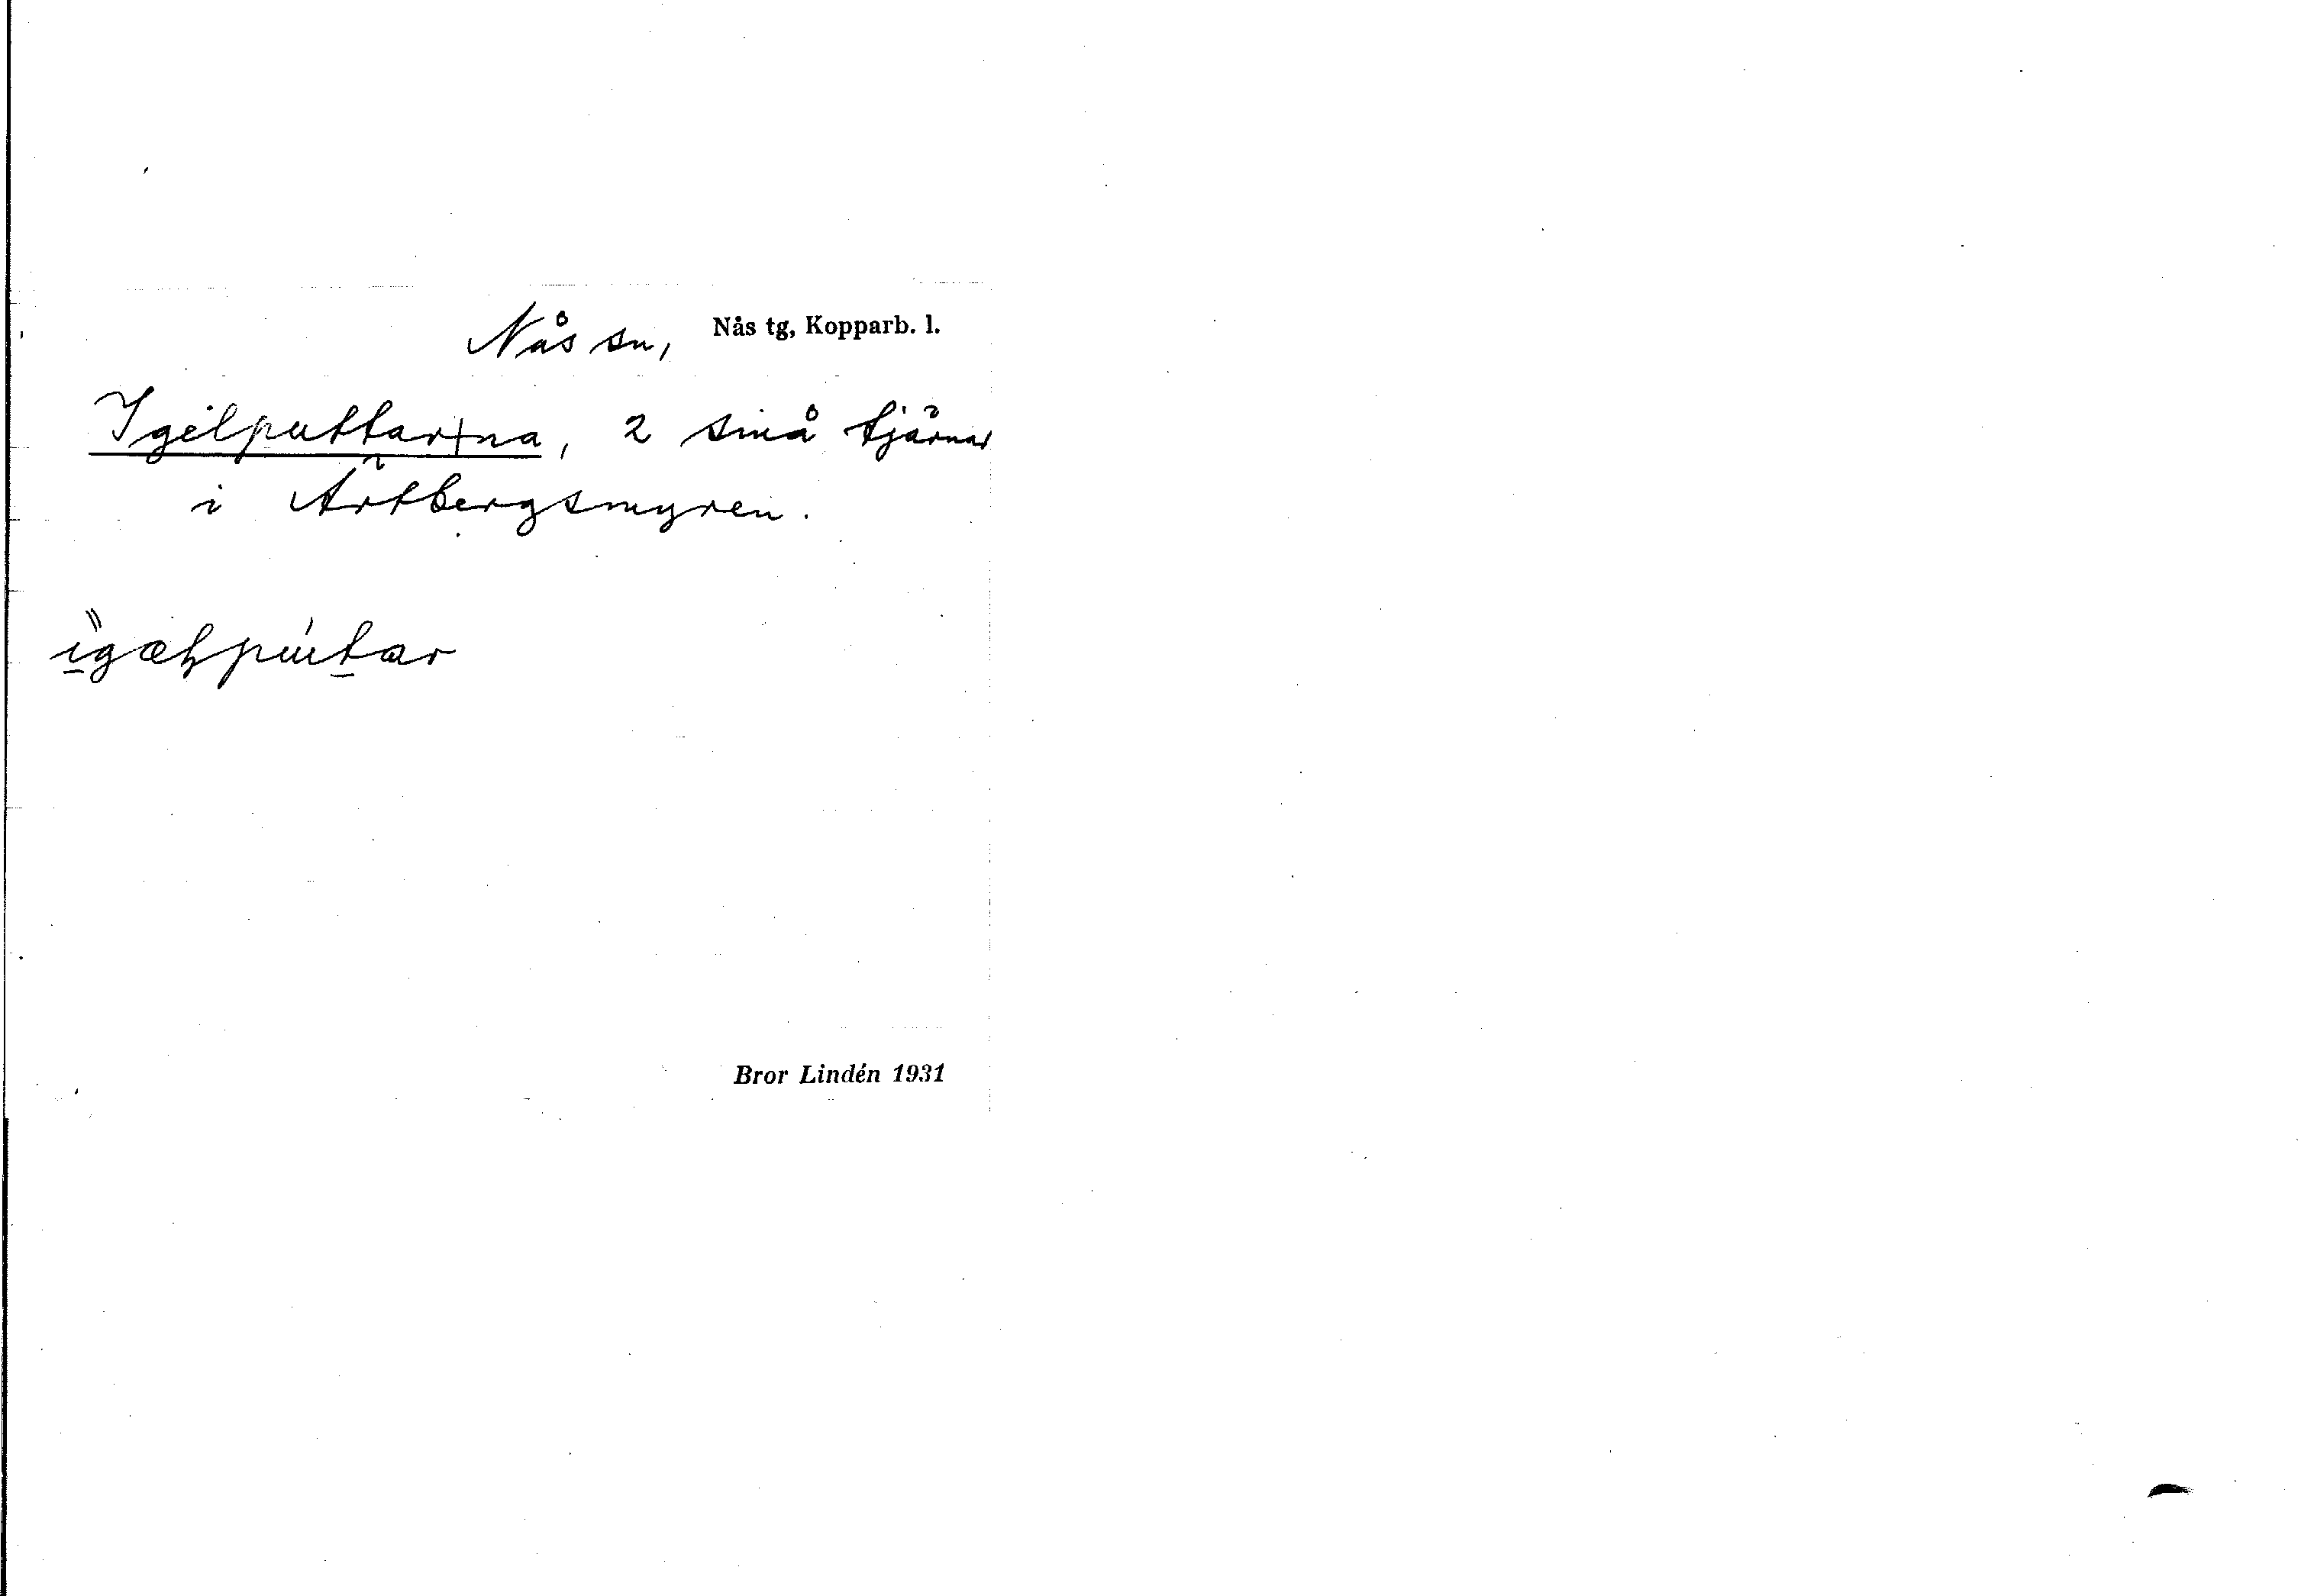 Nås sn, Nås tg, Kopparb. l.
Igelputtar+na, 2 små tjärnar
i Ärtbergsmyren.
Bror Lindén 1931